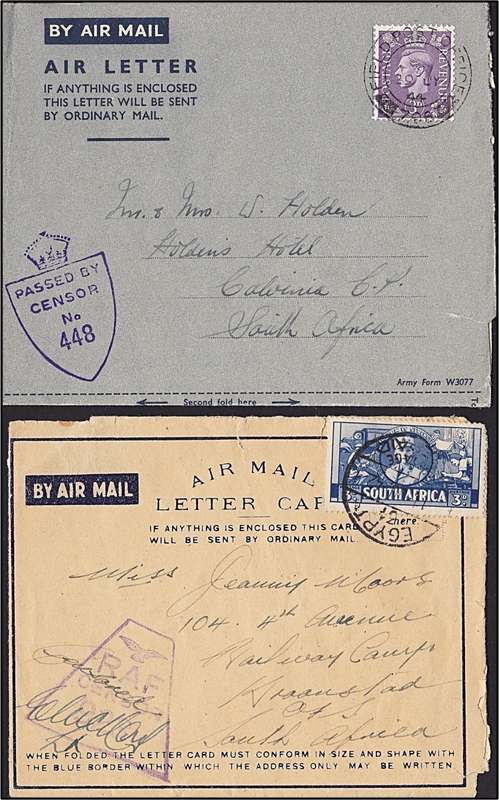 BY AIR MAIL
AIR LETTER
IF ANYTHING IS ENCLOSED
THIS LETTER WILL BE SENT
BY ORDINARY MAIL.
FIELD POST OFFICE
POSTAGE REVENUE
Mr. & Mrs. W. Holden
Holden's Hotel
Calvinia C.P.
South Africa
PASSED BY
CENSOR
No
448
Army Form W3077
Second fold here
AIR MAIL
LETTER CAR
BY AIR MAIL
SOUTH AFRICA 3D
EGYPT
here
IF ANYTHING IS ENCLOSED THIS CARD
WILL BE SENT BY ORDINARY MAIL.
Miss Jeanny Moore
104. 4th Avenue
Railway Camp
Kroonstad
O.F.S.
South Africa
RAF
CENSOR
WHEN FOLDED THE LETTER CARD MUST CONFORM IN SIZE AND SHAPE WITH
THE BLUE BORDER WITHIN WHICH THE ADDRESS ONLY MAY BE WRITTEN.